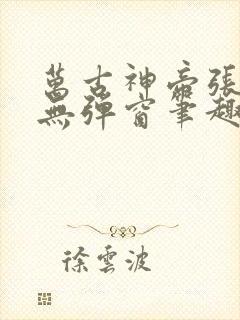 萬古神帝張
無彈窗筆趣
徐雲波